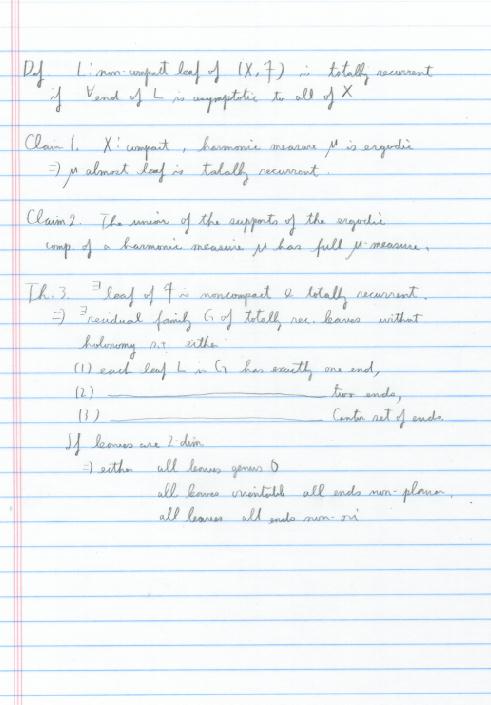 Def L: non-compact leaf of (X, F) is totally recurrent
if ∀end of L is asymptotic to all of X
Claim 1. X: compact, harmonic measure μ is ergodic
⇒) μ almost leaf is totally recurrent.
Claim 2. The union of the supports of the ergodic
comp. of a harmonic measure μ has full μ-measure.
Th. 3. ∃ leaf of F is noncompact & totally recurrent.
⇒) ∃ residual family G of totally rec. leaves without
holonomy s.t. either
(1) each leaf L in G has exactly one end,
(2) ———————— two ends,
(3) ———————— Cantor set of ends.
If leaves are 2-dim
⇒) either all leaves genus 0
all leaves orientable all ends non-planar,
all leaves all ends non-ori